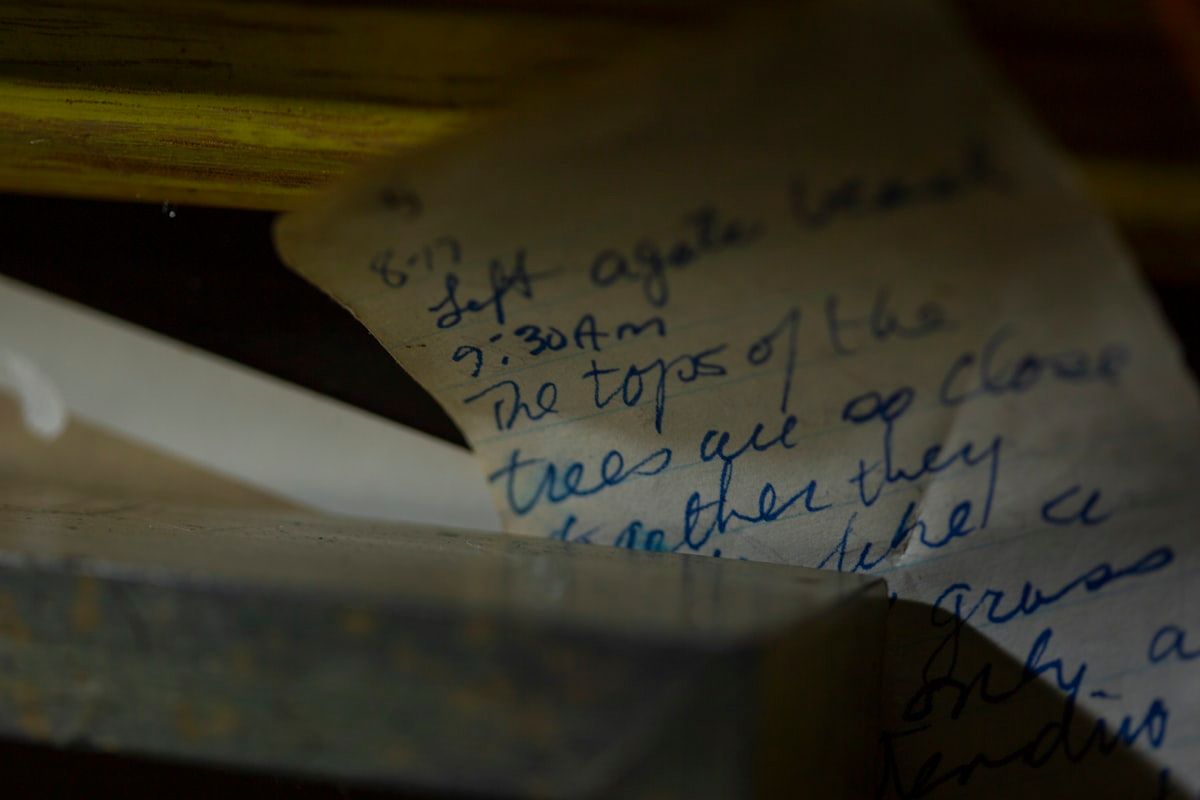 8-17
Left agate beach
9:30 Am
The tops of the
trees are so close
together they
like a
grass
only a